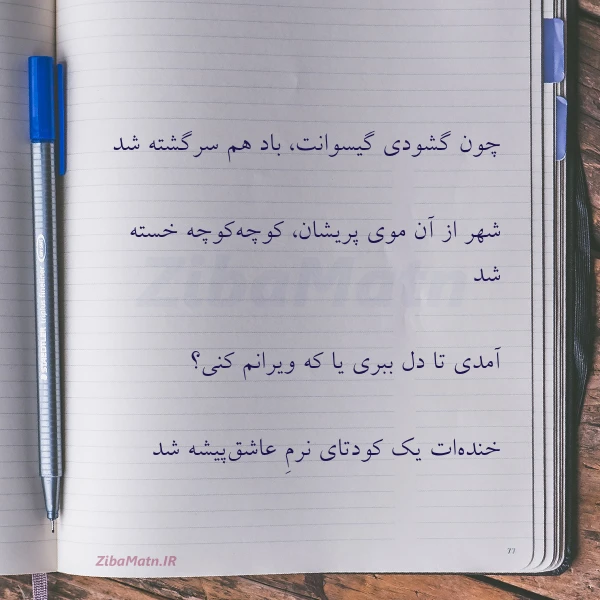 چون گشودی گیسوانت، باد هم سرگشته شد
شهر از آن موی پریشان، کوچه‌کوچه خسته
شد
آمدی تا دل ببری یا که ویرانم کنی؟
خنده‌ات یک کودتای نرمِ عاشق‌پیشه شد
ZibaMatn
ZibaMatn.IR